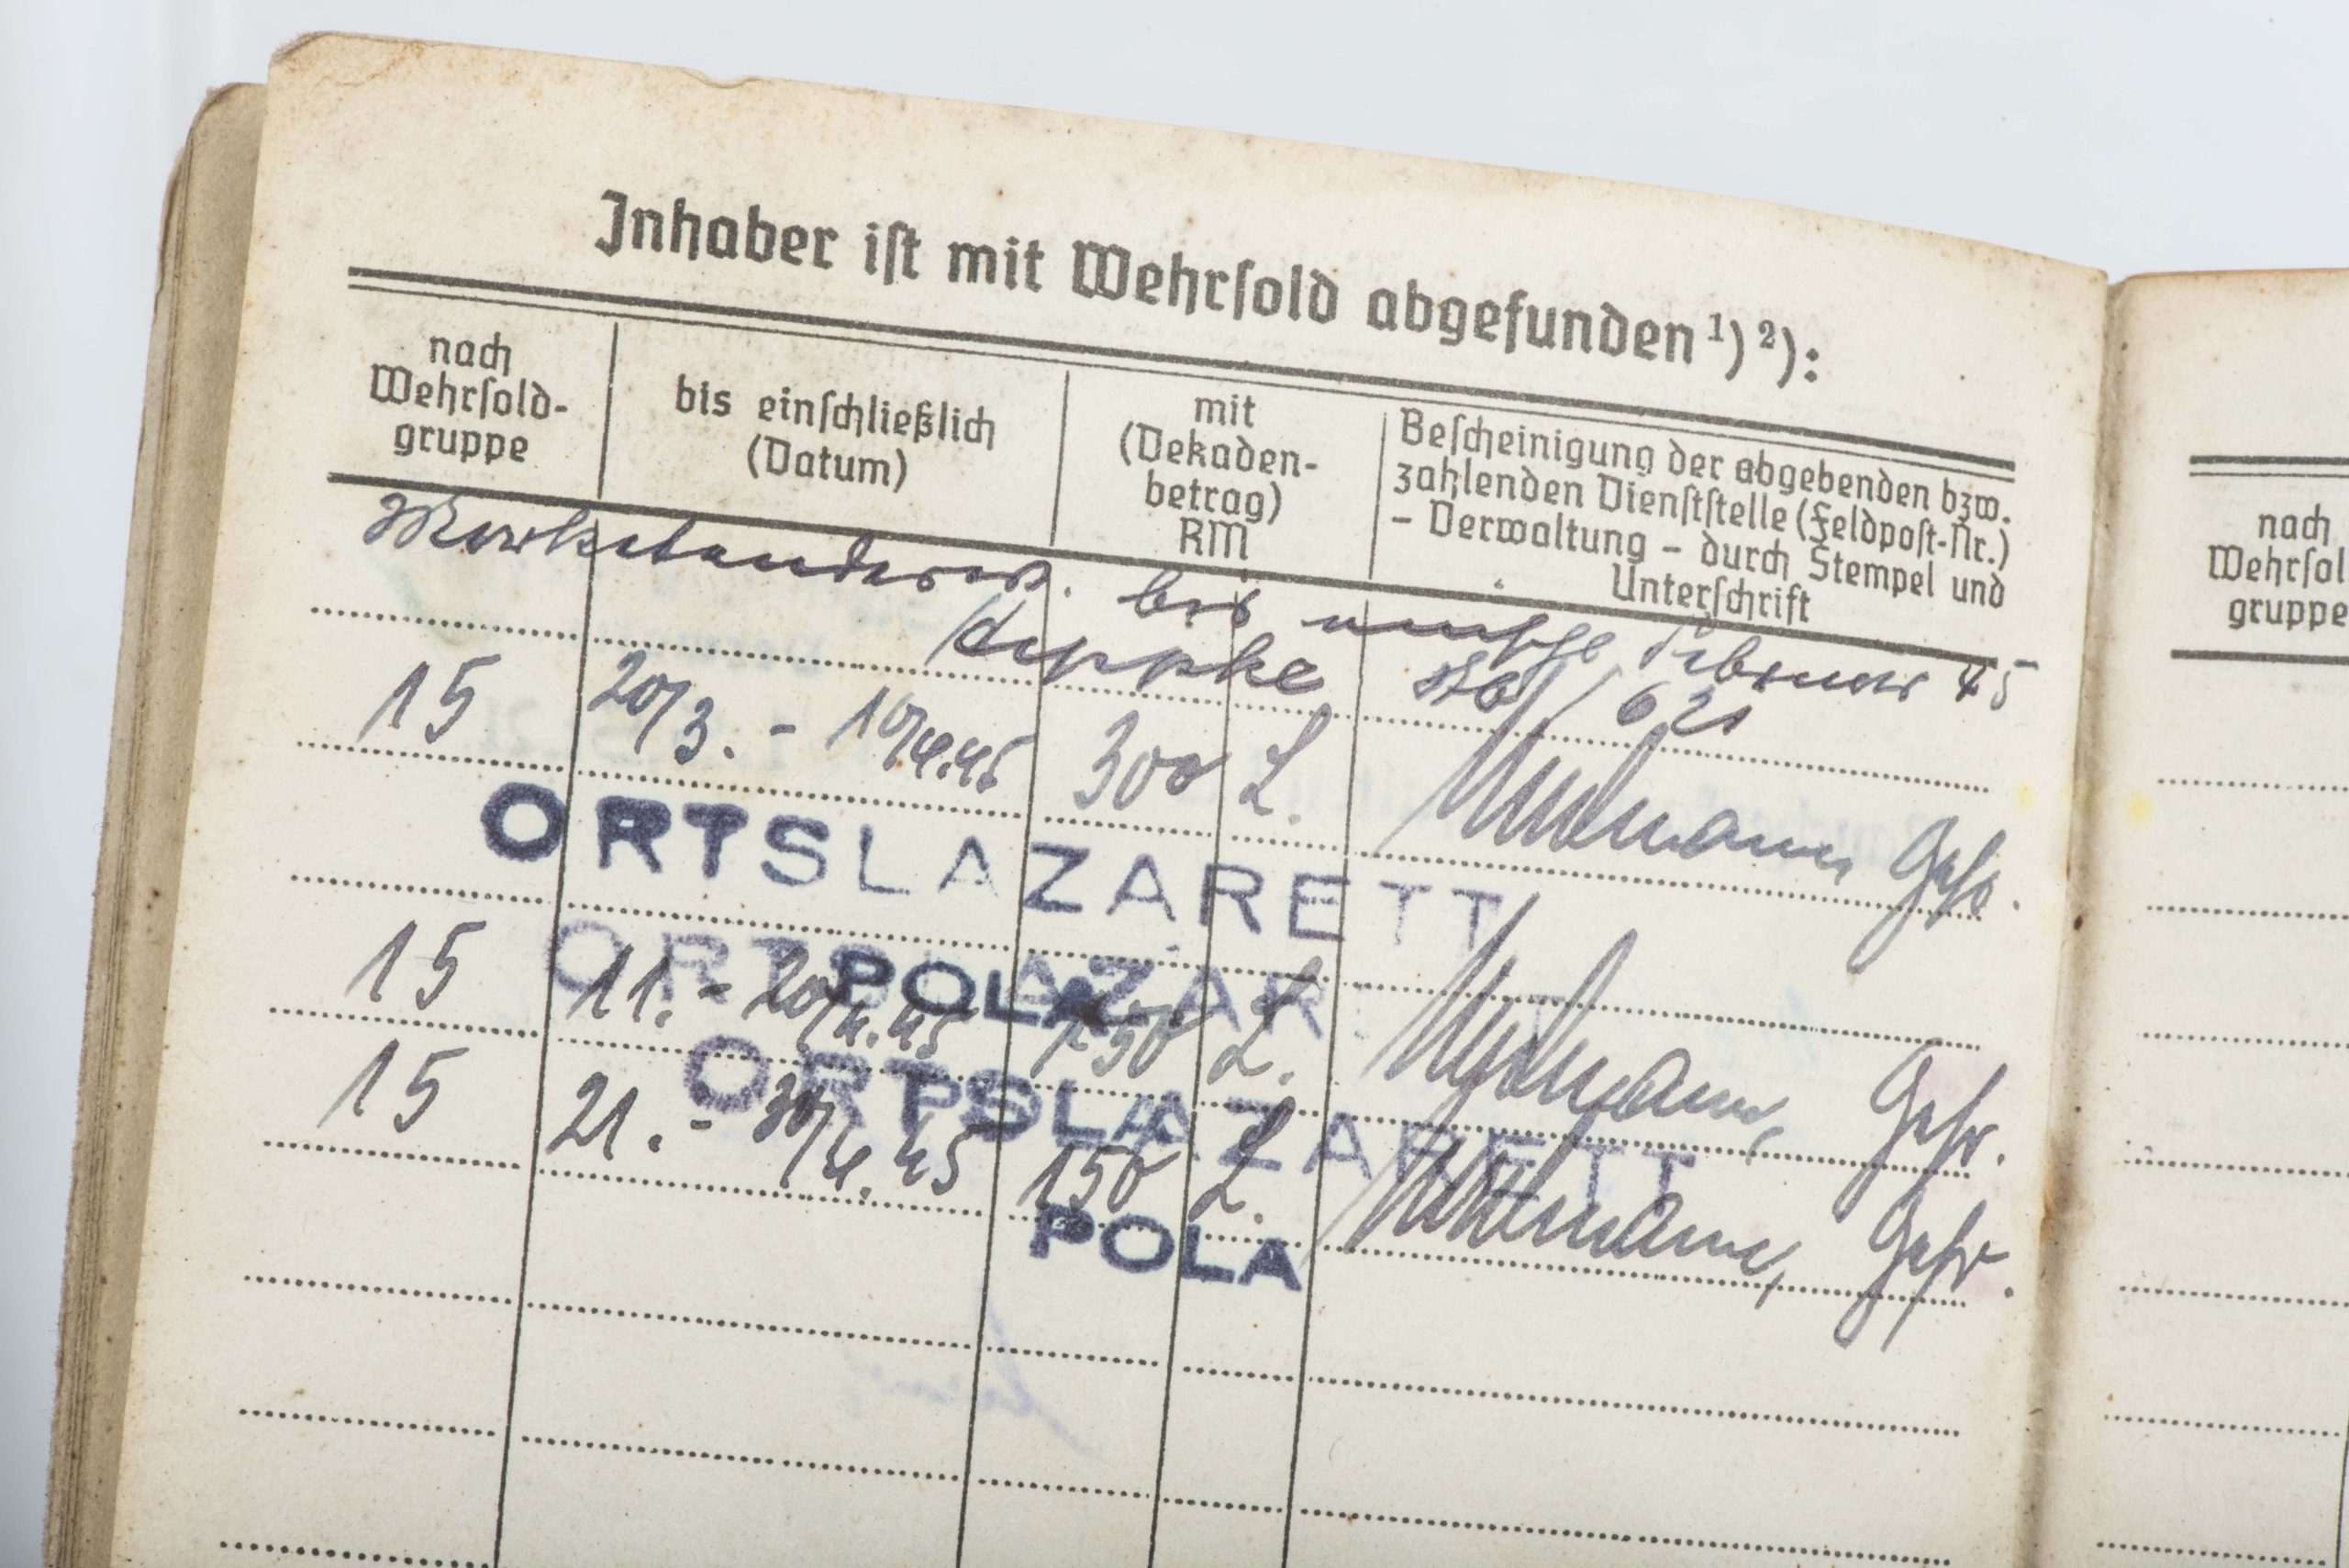 Inhaber ist mit Wehrsold abgefunden ¹) ²):
nach
Wehrsold-
gruppe
bis einschließlich
(Datum)
mit
(Dekaden-
betrag)
RM
Bescheinigung der abgebenden bzw.
zahlenden Dienststelle (Feldpost-Nr.)
- Verwaltung - durch Stempel und
Unterschrift
bis Februar 45
15 20/3. - 10/4.45 300 L.
ORTSLAZARETT
POLA
15 11. - 20/4.45 150 L. Gefr.
ORTSLAZARETT
15 21. - 30/4.45 150 L. Gefr.
POLA
nach
Wehrsol
gruppe